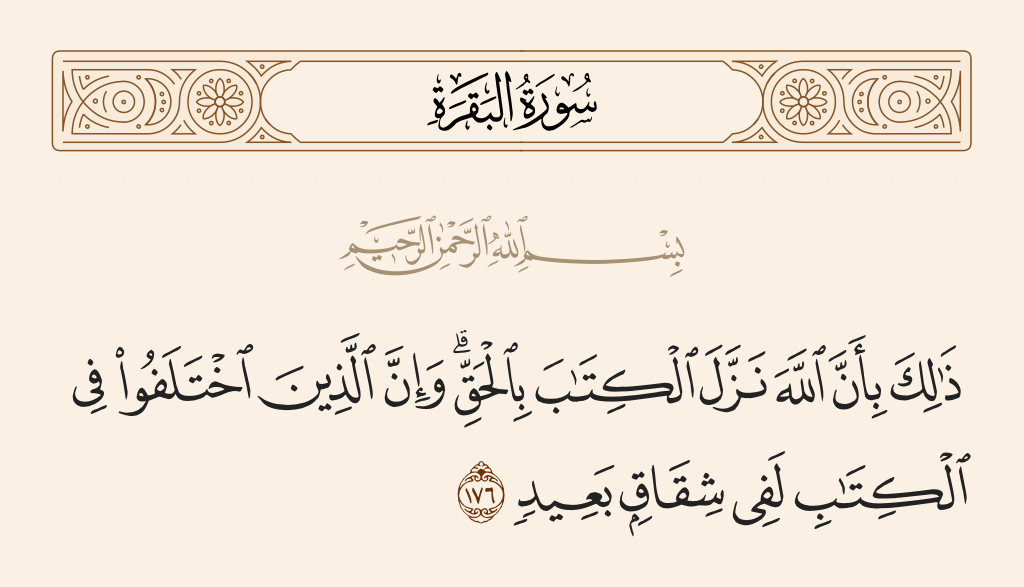 سُورَةُ البَقَرَةِ
بِسْمِ ٱللَّهِ ٱلرَّحْمَٰنِ ٱلرَّحِيمِ
ذَٰلِكَ بِأَنَّ ٱللَّهَ نَزَّلَ ٱلْكِتَٰبَ بِٱلْحَقِّ ۗ وَإِنَّ ٱلَّذِينَ ٱخْتَلَفُوا۟ فِى
ٱلْكِتَٰبِ لَفِى شِقَاقٍۭ بَعِيدٍ ١٧٦